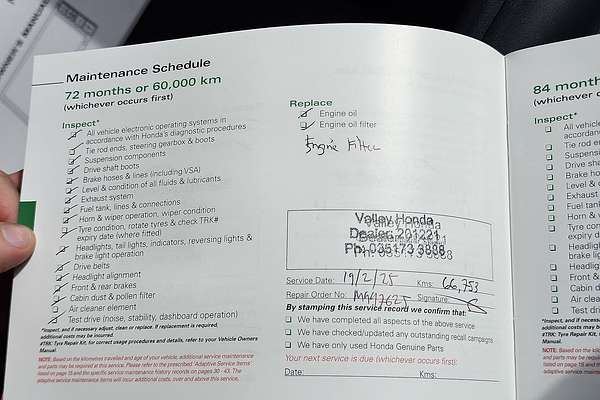 Maintenance Schedule
72 months or 60,000 km
(whichever occurs first)
Inspect*
All vehicle electronic operating systems in
accordance with Honda's diagnostic procedures
Tie rod ends, steering gearbox & boots
Suspension components
Drive shaft boots
Brake hoses & lines (including VSA)
Level & condition of all fluids & lubricants
Exhaust system
Fuel tank, lines & connections
Horn & wiper operation, wiper condition
Tyre condition, rotate tyres & check TRK#
expiry date (where fitted)
Headlights, tail lights, indicators, reversing lights &
brake light operation
Drive belts
Headlight alignment
Front & rear brakes
Cabin dust & pollen filter
Air cleaner element
Test drive (noise, stability, dashboard operation)
*Inspect, and if necessary adjust, clean or replace. If replacement is required,
additional costs may be incurred.
#TRK: Tyre Repair Kit, for correct usage procedures and details, refer to your Vehicle Owners
Manual.
NOTE: Based on the kilometres travelled and age of your vehicle, additional service maintenance
and parts may be required at this service. Please refer to the prescribed 'Adaptive Service Items'
listed on page 15 and the specific service maintenance history records on pages 30 - 43. The
adaptive service maintenance items will incur additional costs, over and above this service.
Replace
Engine oil
Engine oil filter
Engine Filter
Valley Honda
Dealer 201221
Ph: 035173 3888
Service Date: 19/2/25 Kms: 66,753
Repair Order No: Signature
By stamping this service record we confirm that:
We have completed all aspects of the above service
We have checked/updated any outstanding recall campaigns
We have only used Honda Genuine Parts
Your next service is due (whichever occurs first):
Date: Kms:
84 month
(whichever o
Inspect*
All vehicle
accordance
Tie rod e
Suspens
Drive sha
Brake h
Level &
Exhaus
Fuel ta
Horn &
Tyre co
expiry
Headl
brake
Drive
Head
Front
Cabin
Air c
Test
*Inspect, and if neces
additional costs may b
#TRK: Tyre Repair Kit, fo
Manual.
NOTE: Based on the kilo
and parts may be require
listed on page 15 and the
adaptive service mainte